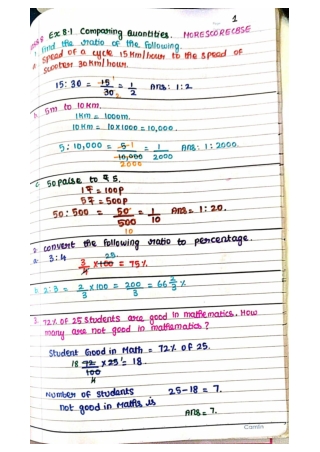 1
Class 8 Ex 8.1 Comparing Quantities. MORESCORECBSE
1. Find the ratio of the following.
a. Speed of a cycle 15 km/hour to the speed of
scooter 30 km/hour.
15 : 30 = 15/30 = 1/2 Ans: 1:2.
b. 5m to 10 km.
1 km = 1000m.
10 km = 10x1000 = 10,000.
5 : 10,000 = 5 1/10,000 2000 = 1/2000 Ans: 1:2000.
c. 50 paise to ₹ 5.
1₹ = 100p
5₹ = 500p
50 : 500 = 50/500 10 = 1/10 Ans = 1:20.
2. Convert the following ratio to percentage.
a. 3:4
3/4 x 100 25 = 75%
b. 2:3 = 2/3 x100 = 200/3 = 66 2/3 %
3. 72% of 25 students are good in mathematics. How
many are not good in mathematics?
Student Good in Math = 72% of 25.
18 72/100 4 x 25 1 = 18.
Number of students 25-18 = 7.
not good in Maths is
Ans = 7.
Camlin